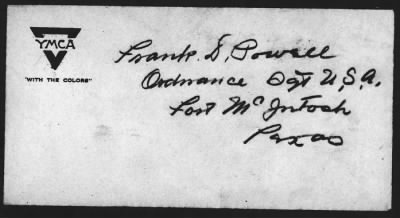 YMCA
"WITH THE COLORS"
Frank D. Powell
Ordnance Sgt U.S.A.
Fort McIntosh
Texas